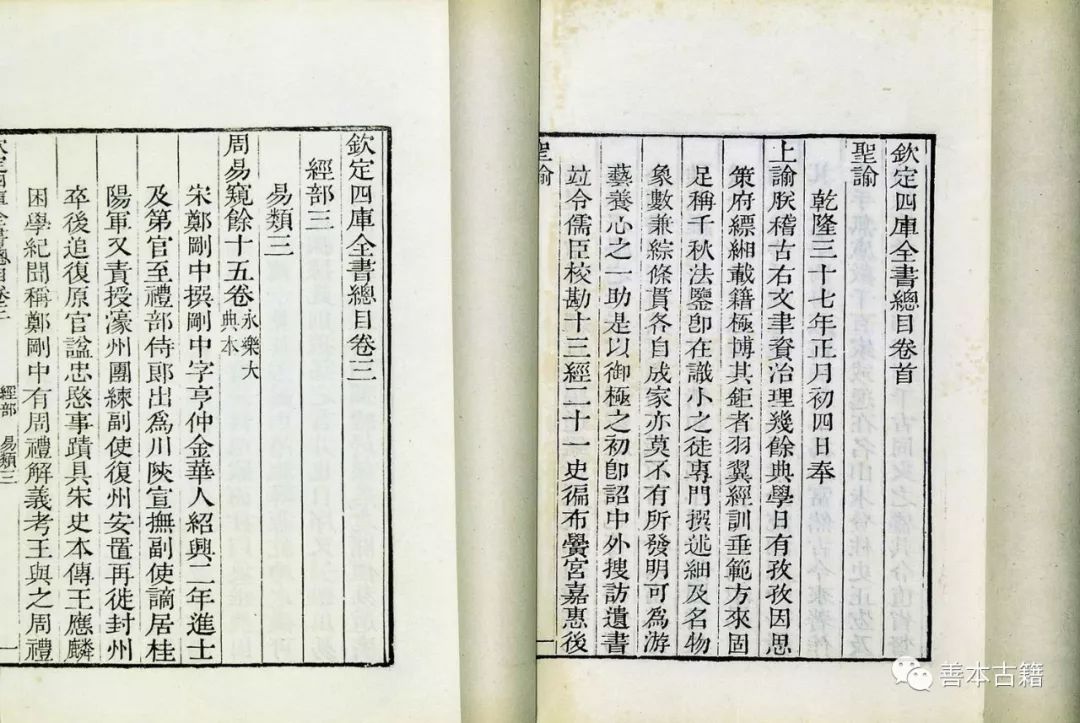 欽定四庫全書總目卷首
聖諭
乾隆三十七年正月初四日奉
上諭朕稽古右文聿資治理幾餘典學日有孜孜因思
策府縹緗載籍極博其鉅者羽翼經訓垂範方來固
足稱千秋法鑒卽在識小之徒專門撰述細及名物
象數兼綜條貫各自成家亦莫不有所發明可爲游
藝養心之一助是以御極之初卽詔中外搜訪遺書
竝令儒臣校勘十三經二十一史徧布黌宮嘉惠後
聖諭
一
欽定四庫全書總目卷三
經部三
易類三
周易窺餘十五卷永樂大
典本
宋鄭剛中撰剛中字亨仲金華人紹興二年進士
及第官至禮部侍郞出爲川陜宣撫副使謫居桂
陽軍又責授濠州團練副使復州安置再徙封州
卒後追復原官諡忠愍事蹟具宋史本傳王應麟
困學紀聞稱鄭剛中有周禮解義考王與之周禮
欽定四庫全書總目卷三
經部 易類三
一
善本古籍